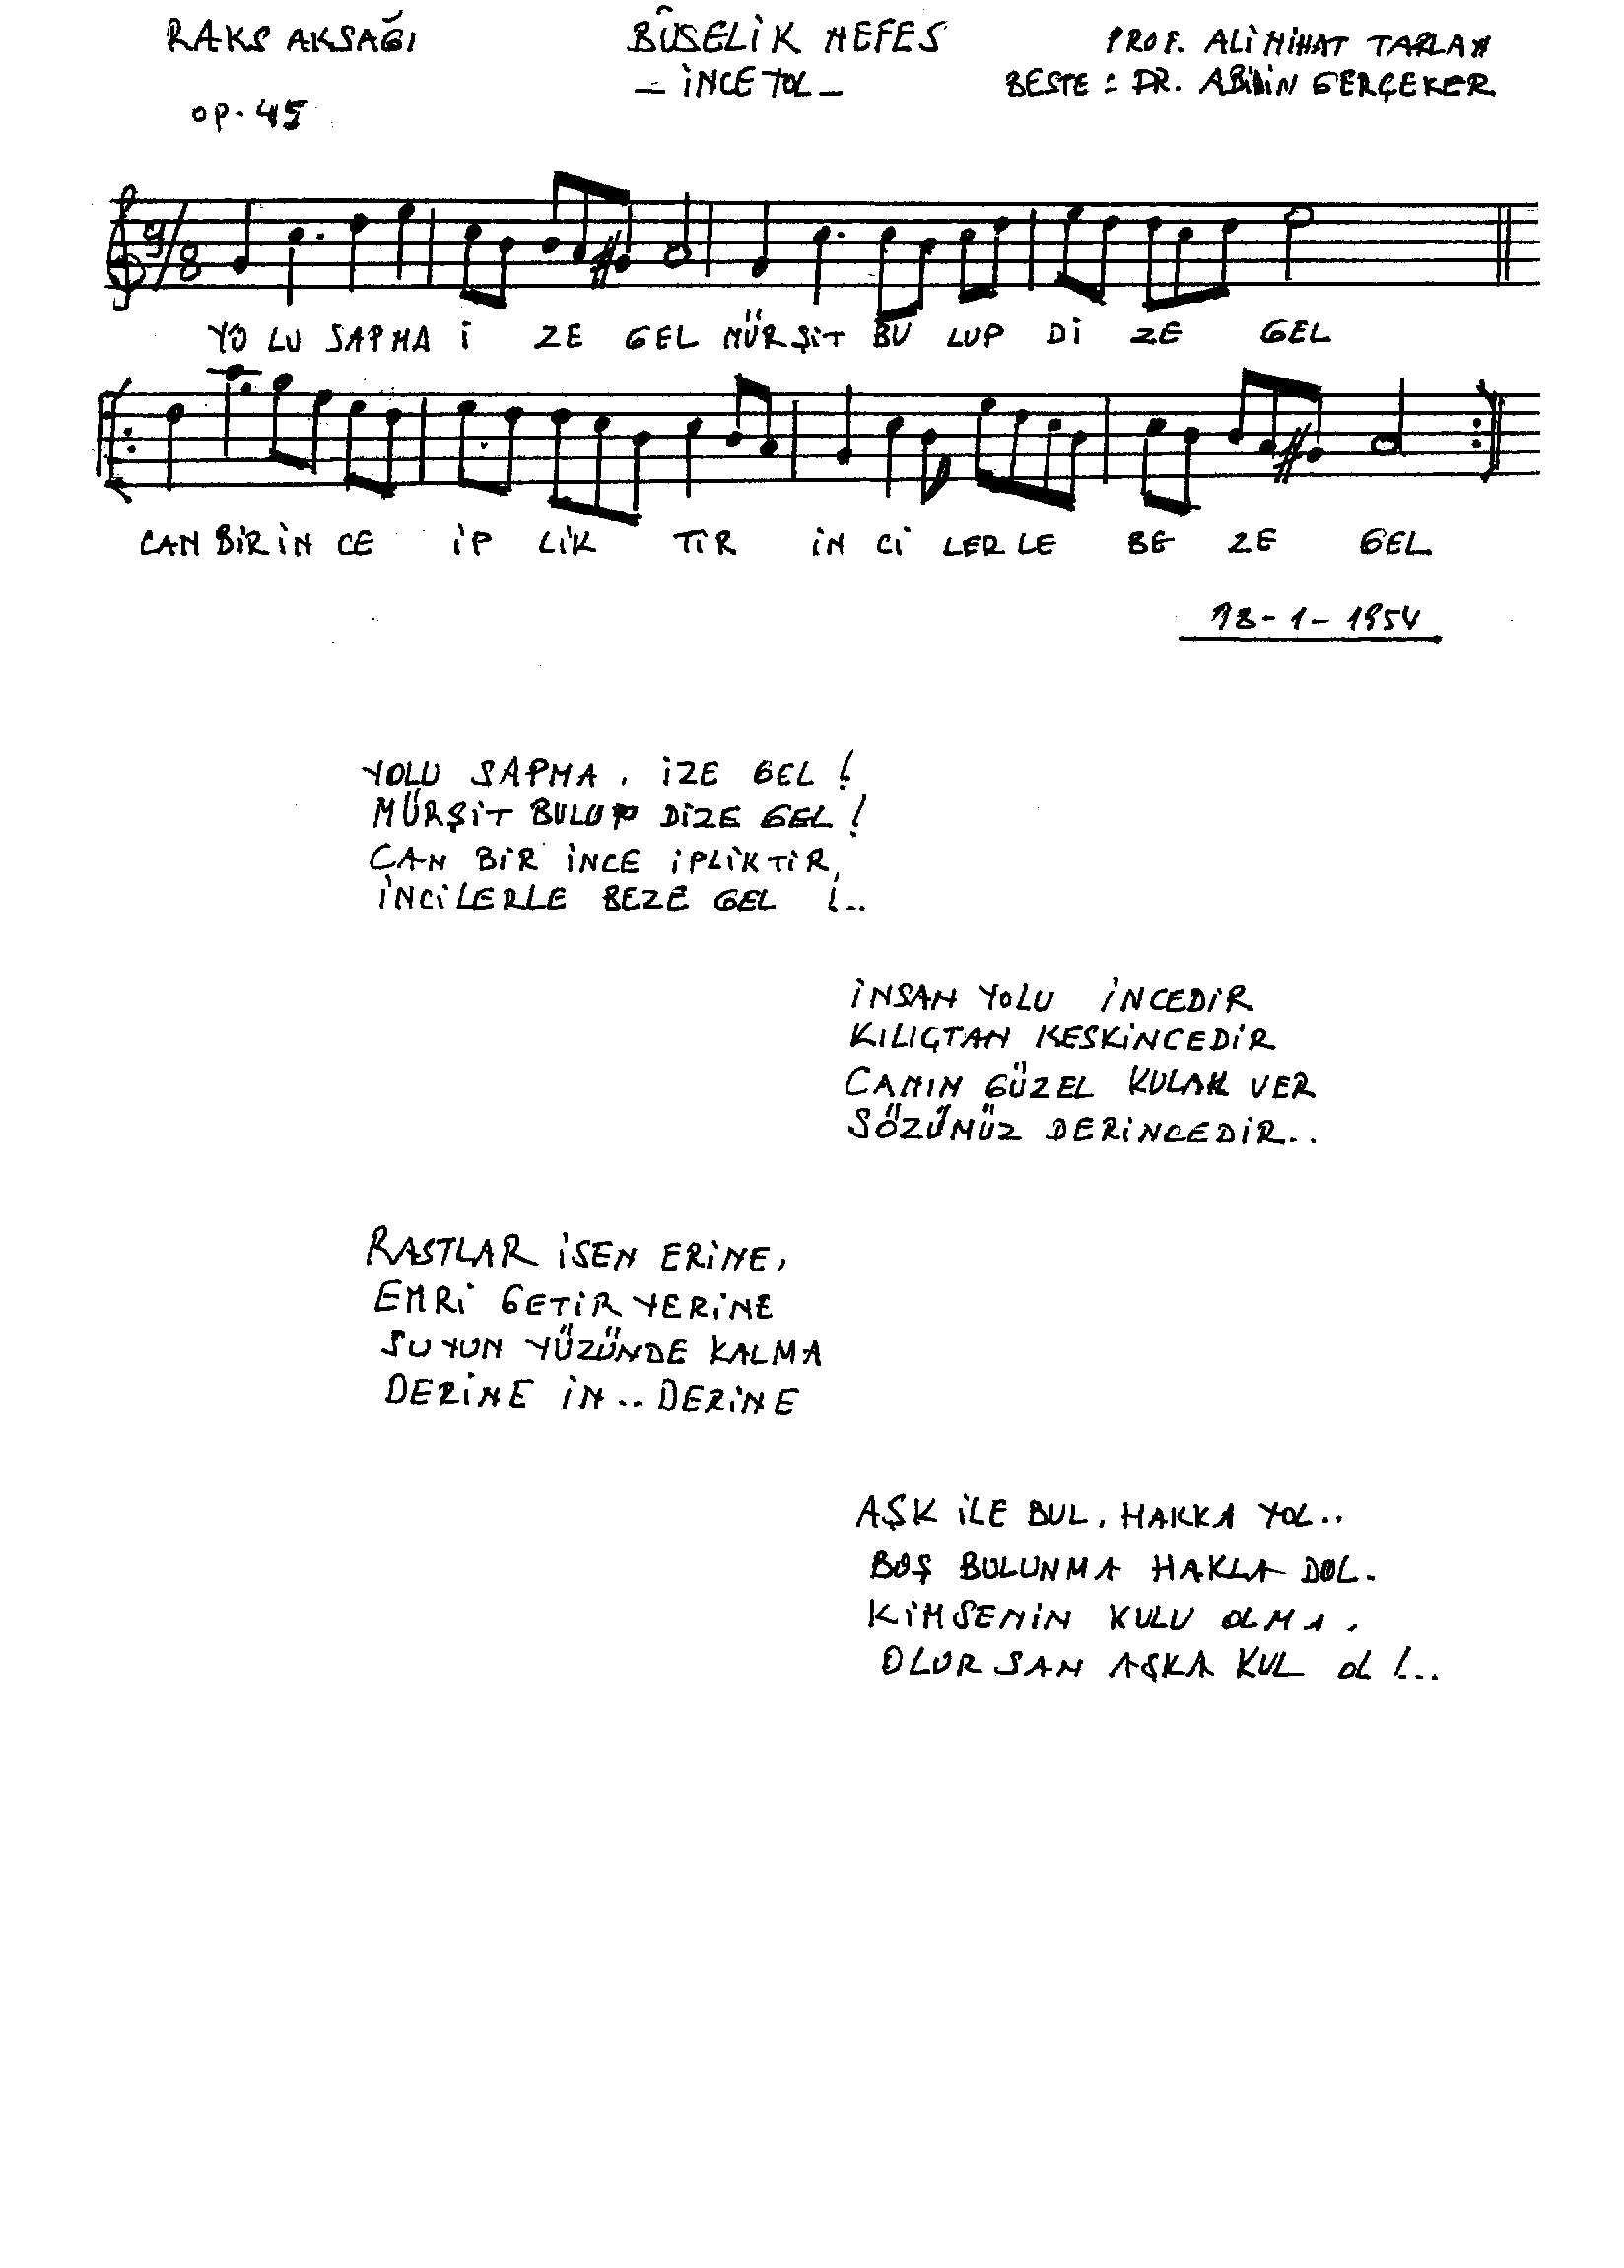 RAKS AKSAĞI
BÛSELİK NEFES
PROF. ALİ NİHAT TARLAN
— İNCE YOL —
BESTE : DR. ABİDİN GERÇEKER
OP. 45
9/8
YO LU SAPMA İ ZE GEL MÜRŞİT BU LUP Dİ ZE GEL
CAN BİR İN CE İP LİK TİR İN Cİ LER LE BE ZE GEL
18-1-1954
YOLU SAPMA, İZE GEL !
MÜRŞİT BULUP DİZE GEL !
CAN BİR İNCE İPLİKTİR,
İNCİLERLE BEZE GEL !..
İNSAN YOLU İNCEDİR
KILIÇTAN KESKİNCEDİR
CANIN GÜZEL KULAK VER
SÖZÜMÜZ DERİNCEDİR..
RASTLAR İSEN ERİNE,
EMRİ GETİR YERİNE
SUYUN YÜZÜNDE KALMA
DERİNE İN.. DERİNE
AŞK İLE BUL, HAKKA YOL..
BOŞ BULUNMA HAKLA DOL.
KİMSENİN KULU OLMA,
OLURSAN AŞKA KUL OL !...